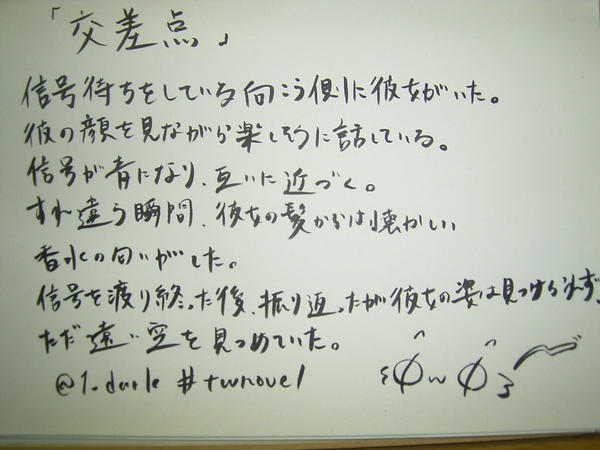 「交差点」
信号待ちをしている向こう側に彼女がいた。
彼の顔を見ながら楽しそうに話している。
信号が青になり、互いに近づく。
すれ違う瞬間、彼女の髪からは懐かしい
香水の匂いがした。
信号を渡り終った後、振り返ったが彼女の姿は見つけられず、
ただ遠い空を見つめていた。
#twnovel